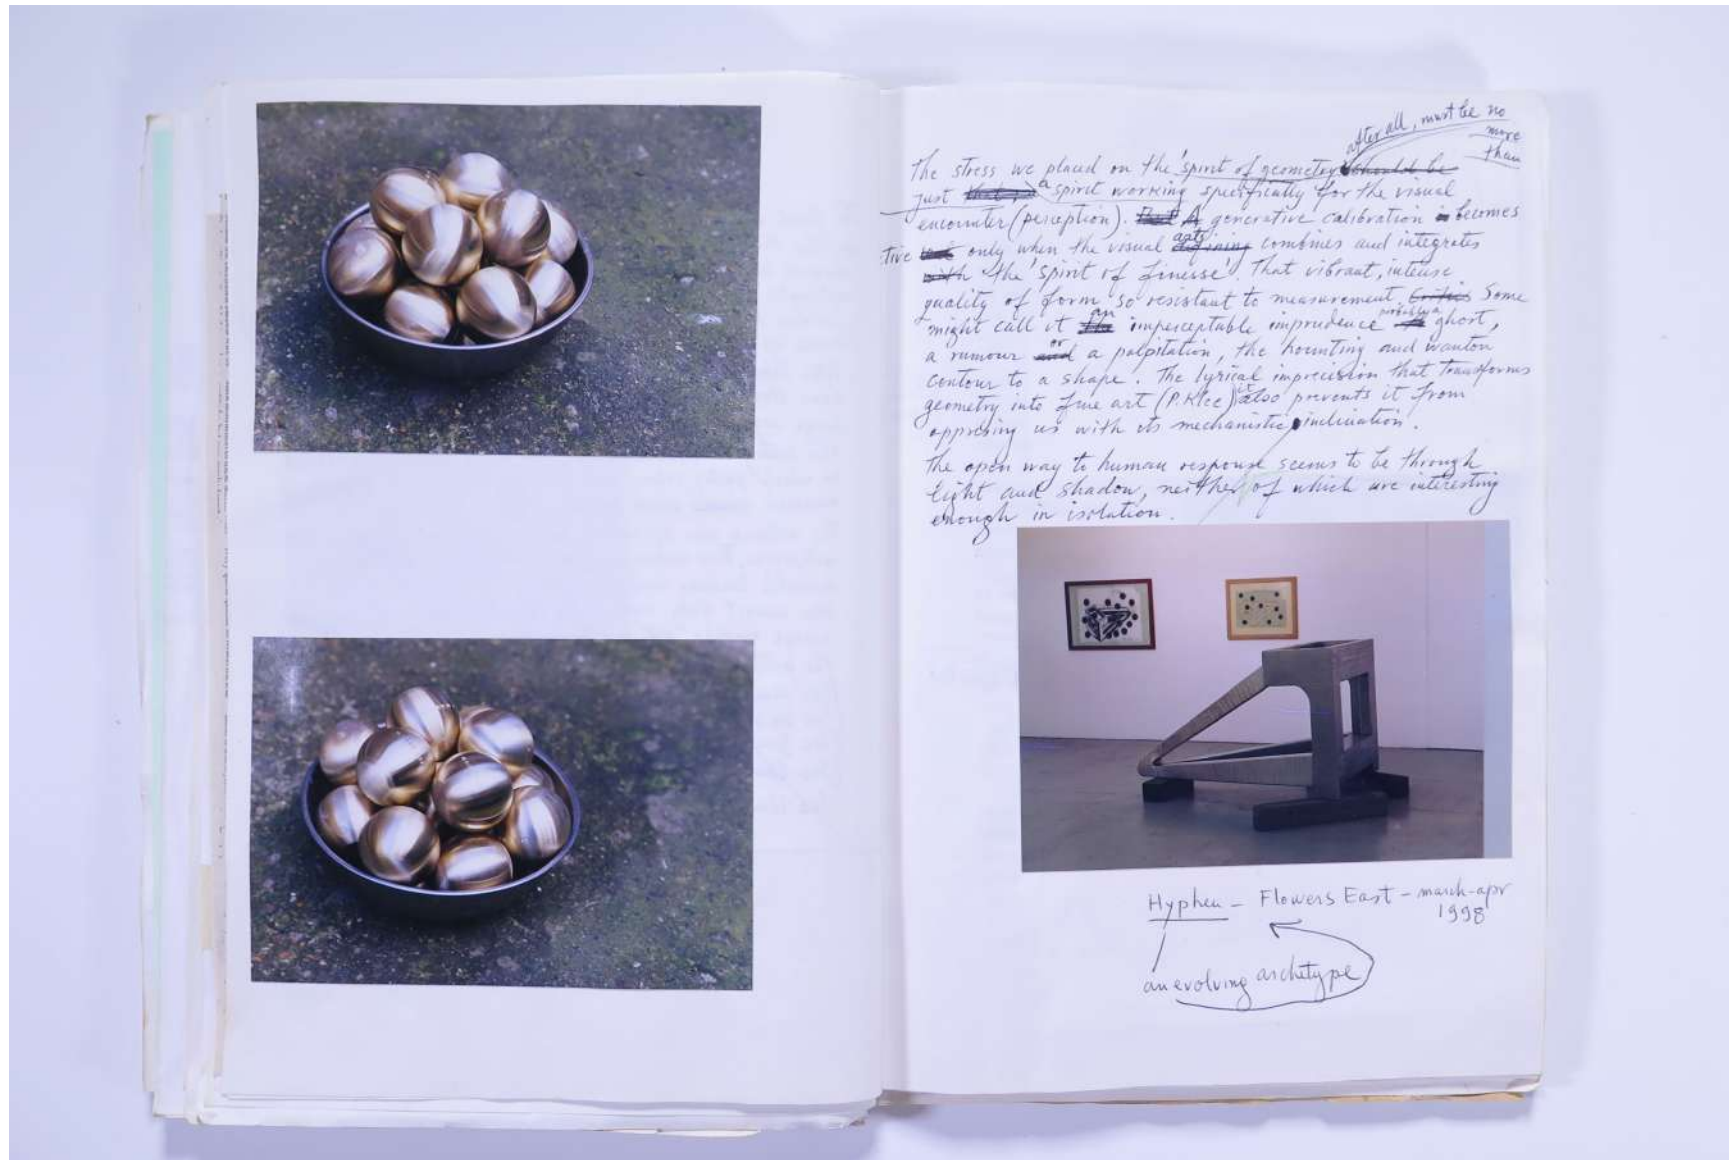 after all, must be no
more
than
The stress we placed on the 'spirit of geometry' should be
just a spirit working specifically for the visual
encounter (perception). A generative calibration becomes
tive only when the visual arts combines and integrates
with the 'spirit of finesse'. That vibrant, intense
quality of form so resistant to measurement. Critics Some
might call it an imperceptable imprudence possibly a ghost,
a rumour or a palpitation, the haunting and wanton
contour to a shape. The lyrical imprecision that transforms
geometry into fine art (P. Klee) it also prevents it from
oppressing us with its mechanistic inclination.
The open way to human response seems to be through
light and shadow, neither of which are interesting
enough in isolation.
Hyphen – Flowers East – march-apr
1998
an evolving archetype